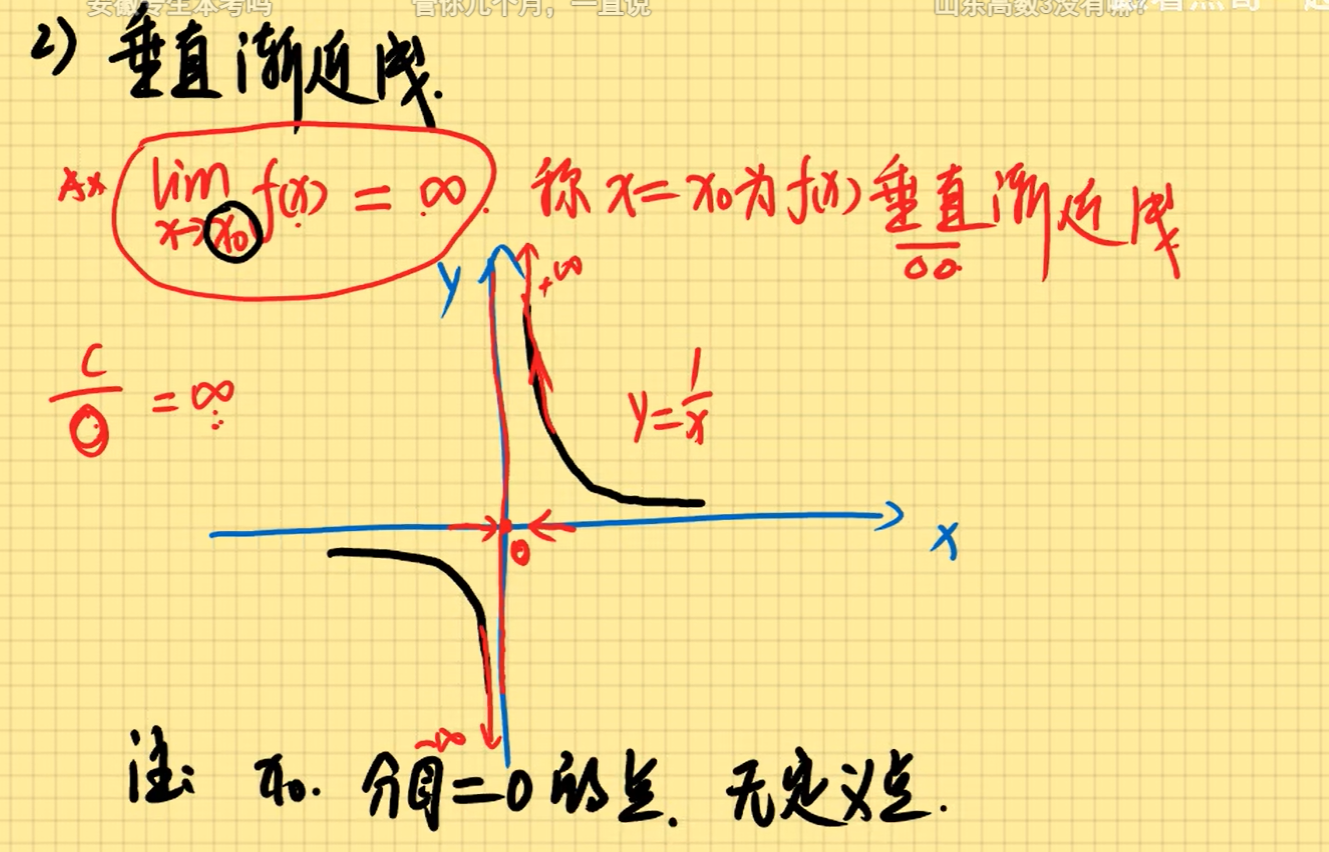 安徽专生本考吗 管你几个月，一直说 山东高数3没有嘛?
2) 垂直渐近线.
lim f(x) = ∞. 称 x = x₀ 为 f(x) 垂直渐近线
x→x₀
y
+∞
C/0 = ∞
y = 1/x
0
x
-∞
注: x₀. 分母=0 的点. 无定义点.